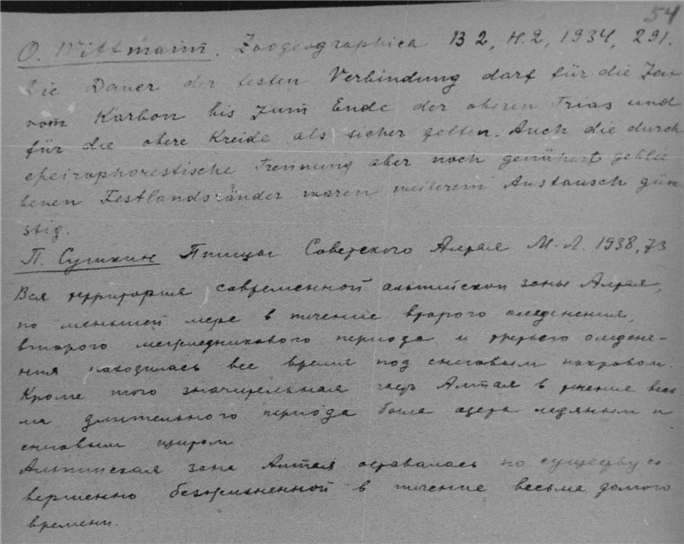 54
O. Wittmann. Zoogeographica B 2, H. 2, 1934, 291.
Die Dauer der festen Verbindung darf für die Zeit
vom Karbon bis zum Ende der oberen Trias und
für die obere Kreide als sicher gelten. Auch die durch
epeirophorestische Trennung aber noch genähert geblie
benen Festlandsränder waren weiterem Austausch gün
stig.
П. Сушкин Птицы Советского Алтая М. Л. 1938, 73
Вся территория современной альпийской зоны Алтая,
по меньшей мере в течение второго оледенения,
второго межледникового периода и третьего оледене-
ния находилась все время под снеговым покровом.
Кроме того значительная часть Алтая в течение весь-
ма длительного периода была одета ледяным и
снеговым щитом.
Альпийская зона Алтая оставалась по существу со-
вершенно безжизненной в течение весьма долгого
времени.